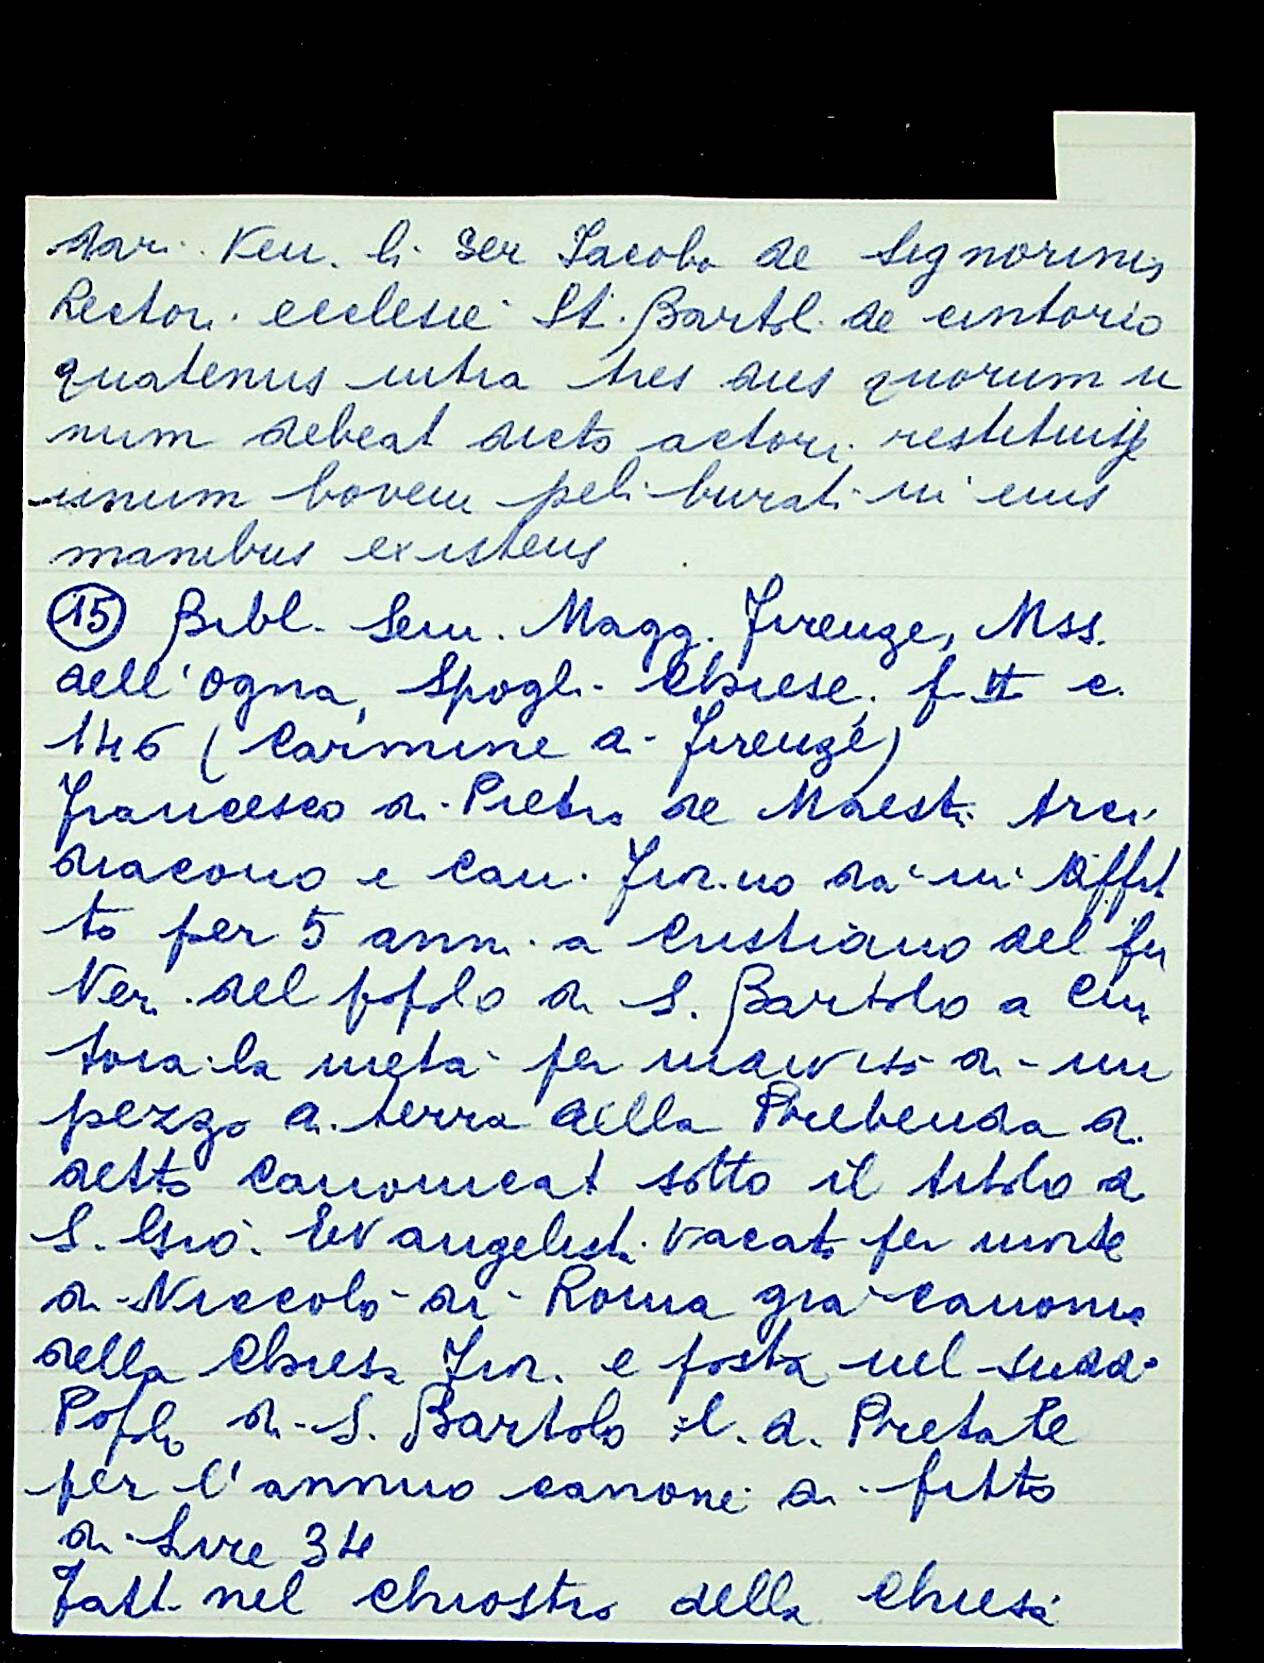 dari Ven. li Ser Jacobo de Signorinis
Rectori ecclesie St. Bartol. de cintorio
quatenus intra tres dies quorum u
num debeat dicto actori restituisse
unum bovem peli burati in eius
manibus existens
(15) Bibl. Sem. Magg. Firenze, Mss.
dell'Ogna, Spogli Chiese, f. II c.
146 (Carmine di Firenze)
Francesco di Pietro de Maestri Arci
diacono e Can. Fior.no dà in Affit
to per 5 anni a Cristiano del fu
Neri del popolo di S. Bartolo a Cin
toia la metà per indiviso di un
pezzo di terra della Prebenda di
detto Canonicat sotto il titolo di
S. Giò. Evangelist. vacat per morte
di Niccolò di Roma già canonico
della Chiesa Fior. e posta nel sudd.
Popolo di S. Bartolo l. d. Pretate
per l'annuo canone di fitto
di Lire 34
Fatt nel Chiostro della Chiesa